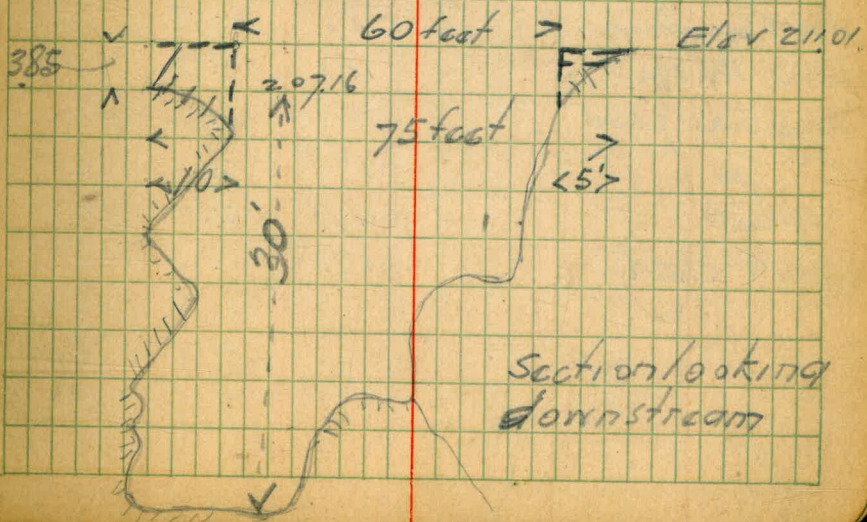 60 feet
Elev 211.01
385
207.16
75 feet
10
<5'>
30'
Section looking
downstream